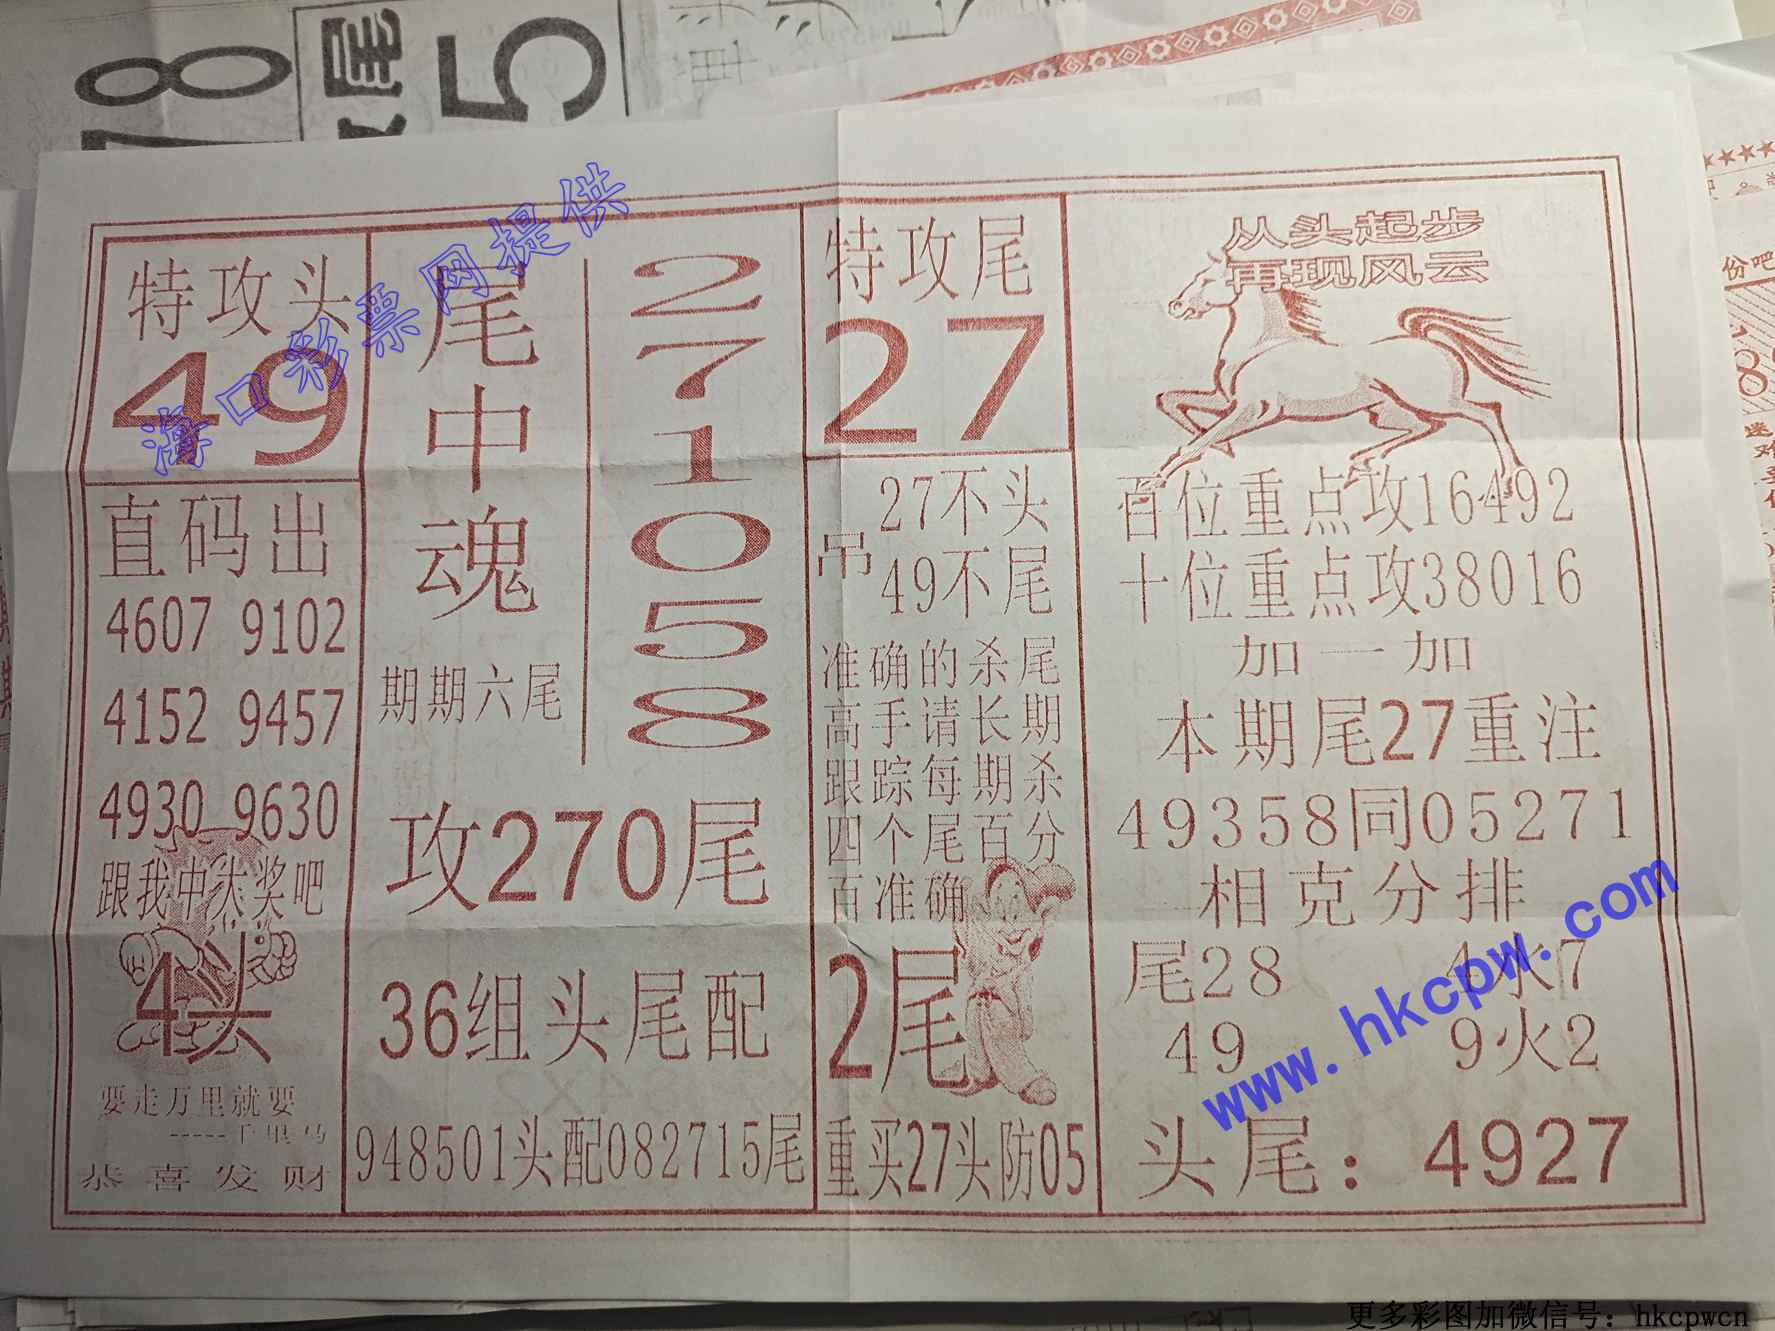 尾
特攻头
49
直码出
4607 9102
4152 9457
4930 9630
跟我中大奖吧
4头
要走万里就要
-----千里马
恭喜发财
尾中魂
271058
期期六尾
攻270尾
36组头尾配
948501头配082715尾
特攻尾
27
吊
27不头
49不尾
准确的杀尾
高手请长期
跟踪每期杀
四个尾百分
百准确
2尾
重买27头防05
从头起步
再现风云
百位重点攻16492
十位重点攻38016
加一加
本期尾27重注
49358同05271
相克分排
尾28 4水7
49 9火2
头尾：4927
海口彩票网提供
www.hkcpw.com
更多彩图加微信号：hkcpwcn